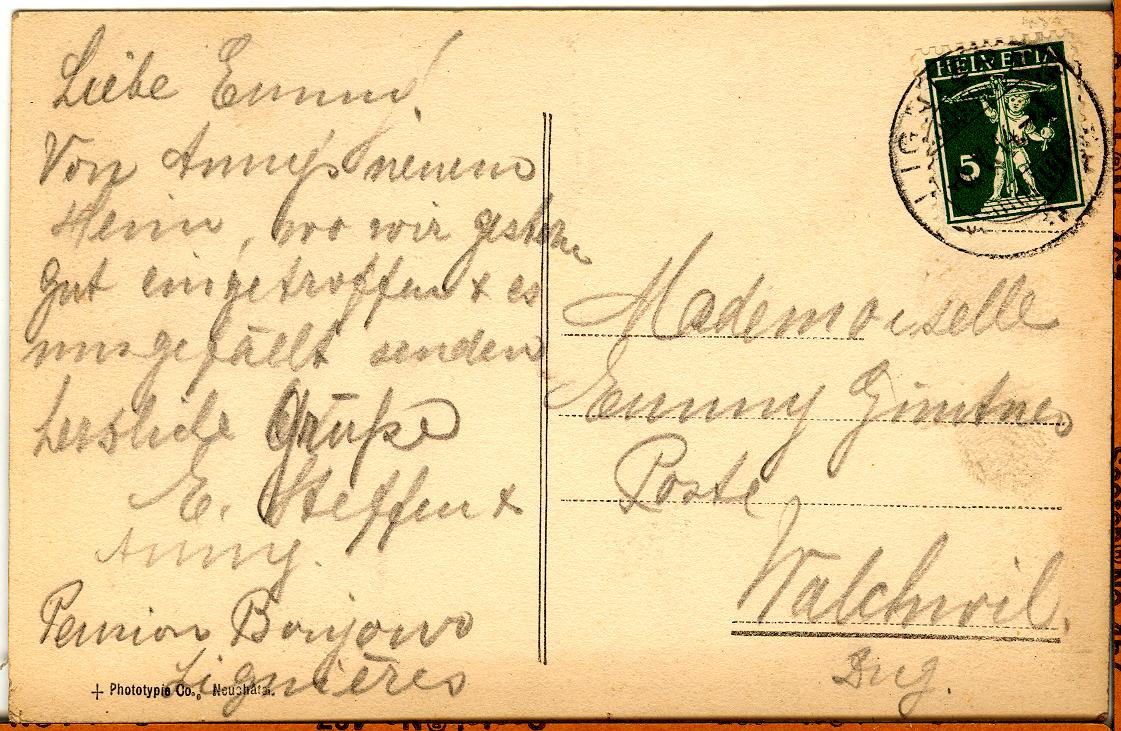 Liebe Emmy!
Von Anny's neuem
Heim, wo wir gestern
gut eingetroffen & es
uns gefällt senden
herzliche Grüße
E. Steffen &
Anny.
Pension Bonjour
Lignières
Phototypie Co., Neuchâtel.
HELVETIA
5
LIGN
Mademoiselle
Emmy
Poste
Walchwil.